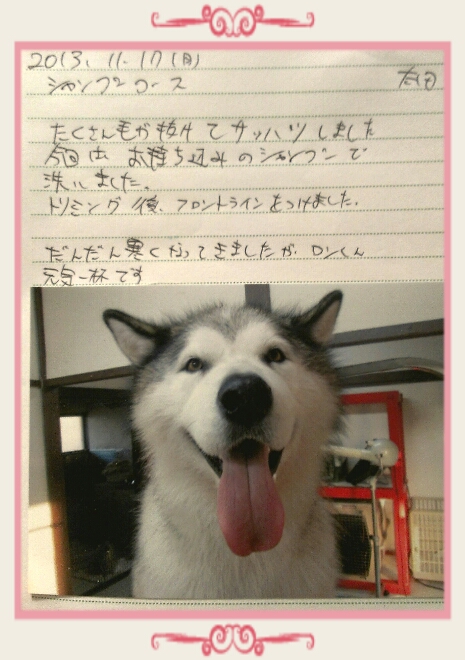 2013.11.17(月)
シャンプーコース 太田
たくさん毛が抜けてサッパリしました
今回は お持ち込みのシャンプーで
洗いました。
トリミング後、フロントラインをつけました。
だんだん寒くなってきましたが、ロンくん
元気一杯です